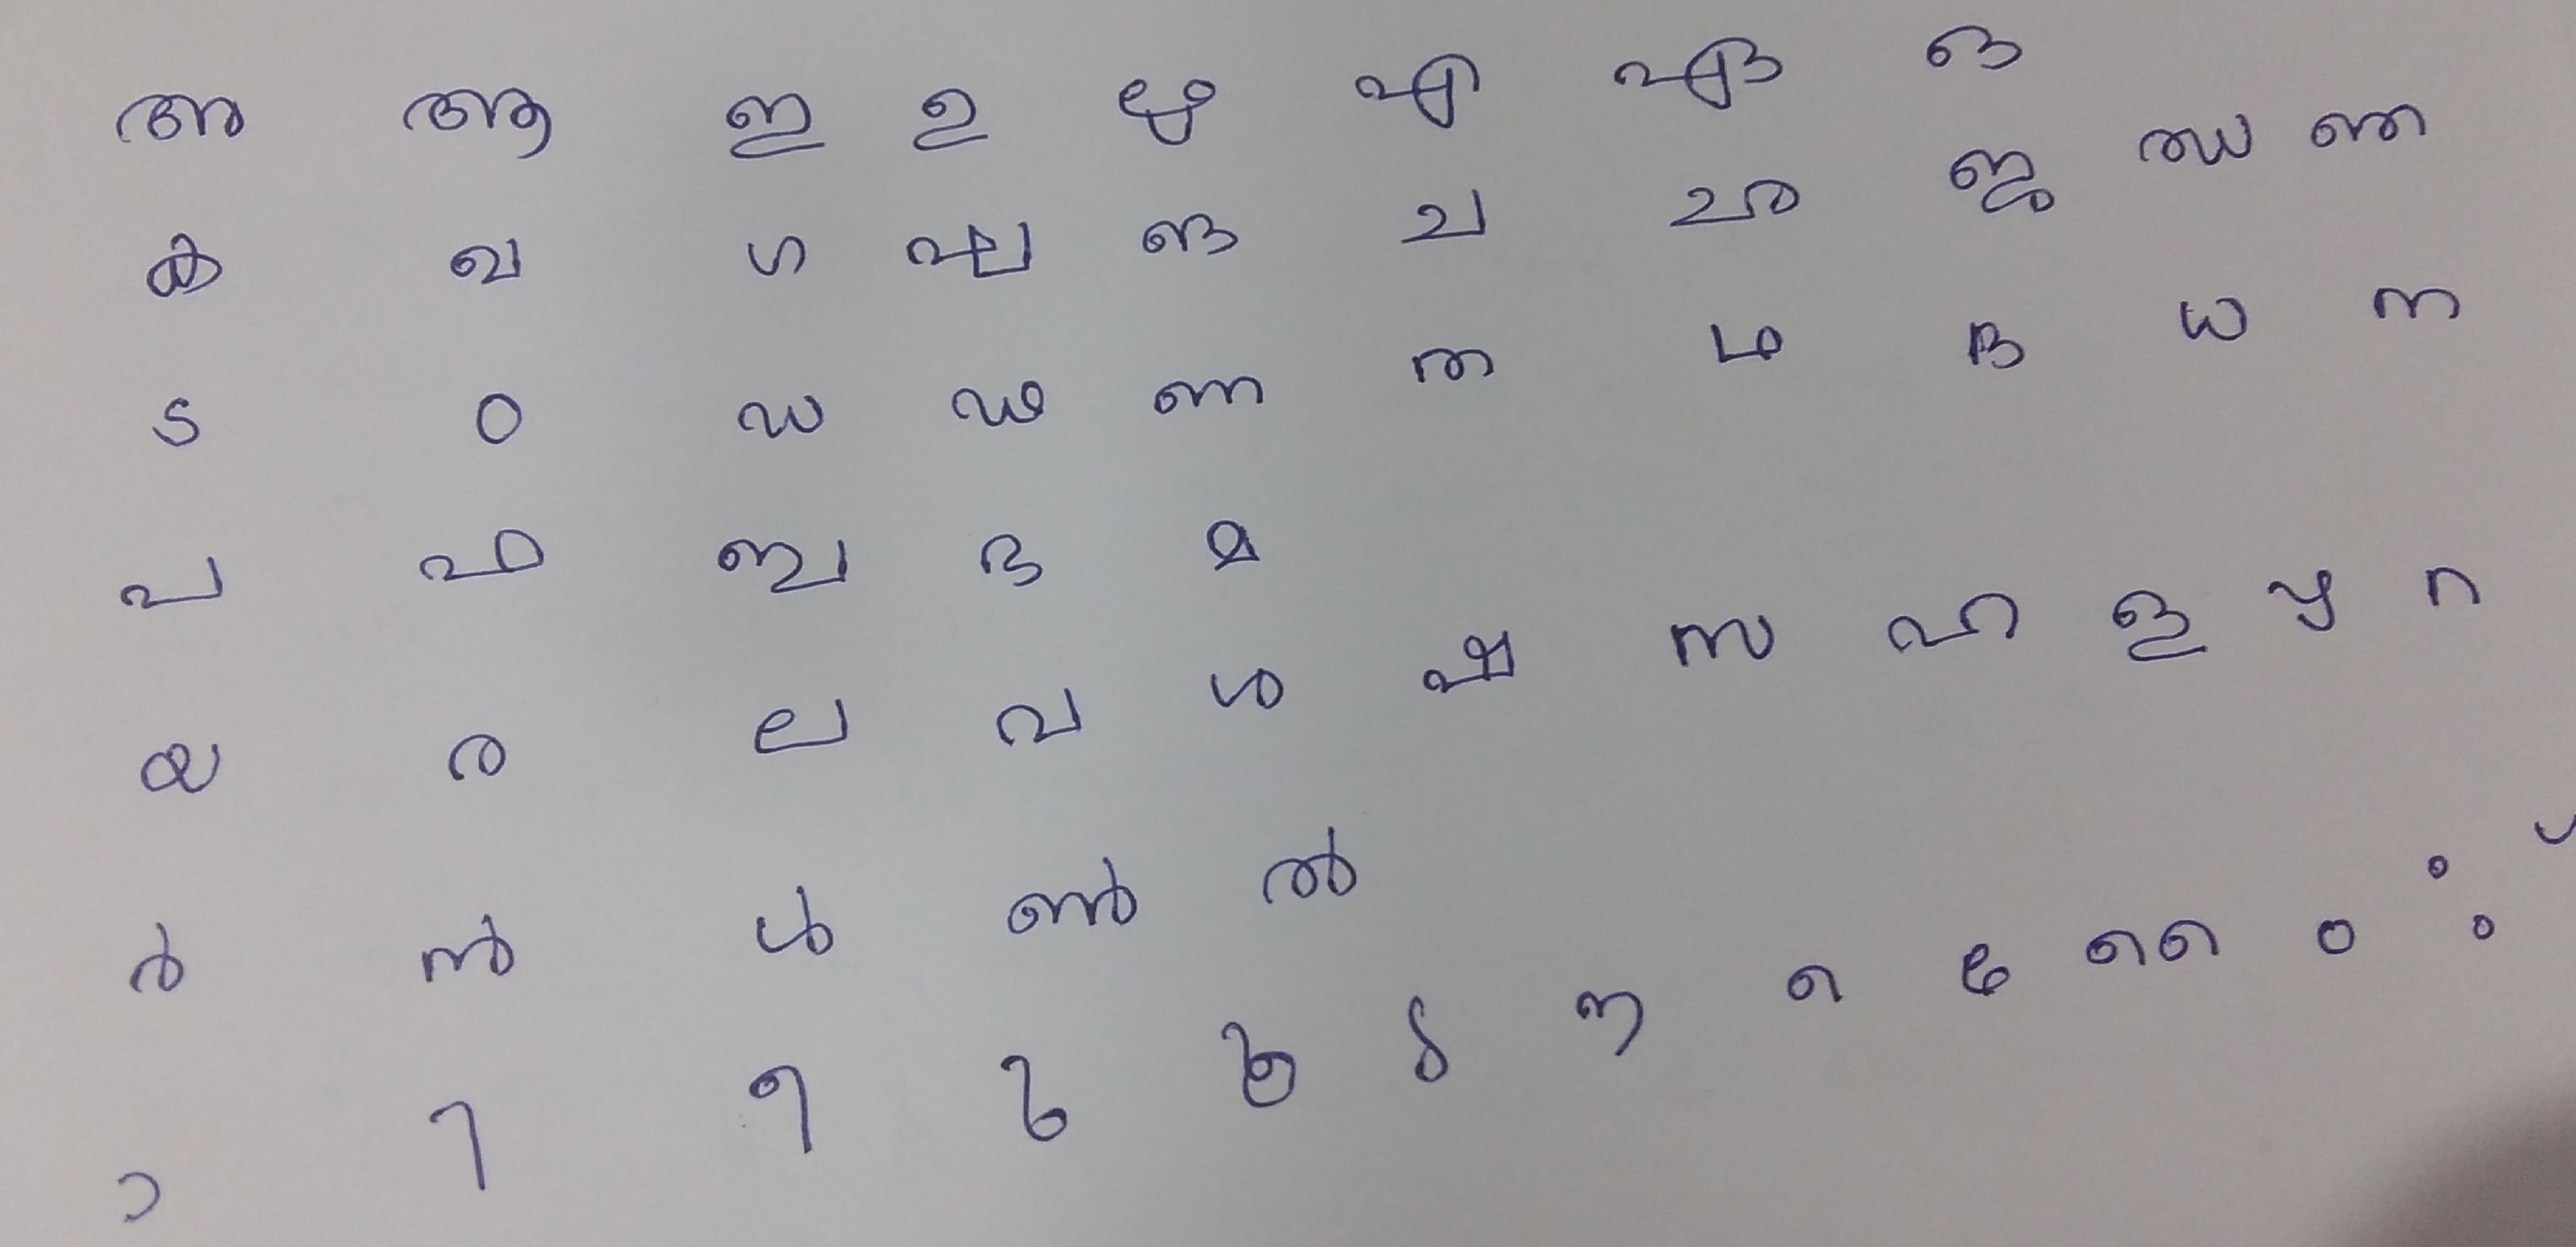 അ ആ ഇ ഉ ഋ എ ഏ ഒ
ക ഖ ഗ ഘ ങ ച ഛ ജ ഝ ഞ
ട ഠ ഡ ഢ ണ ത ഥ ദ ധ ന
പ ഫ ബ ഭ മ
യ ര ല വ ശ ഷ സ ഹ ള ഴ റ
ർ ൻ ൾ ൺ ൽ
ാ ി ീ ു ൂ ൃ ൗ െ േ ൈ ം ഃ ്